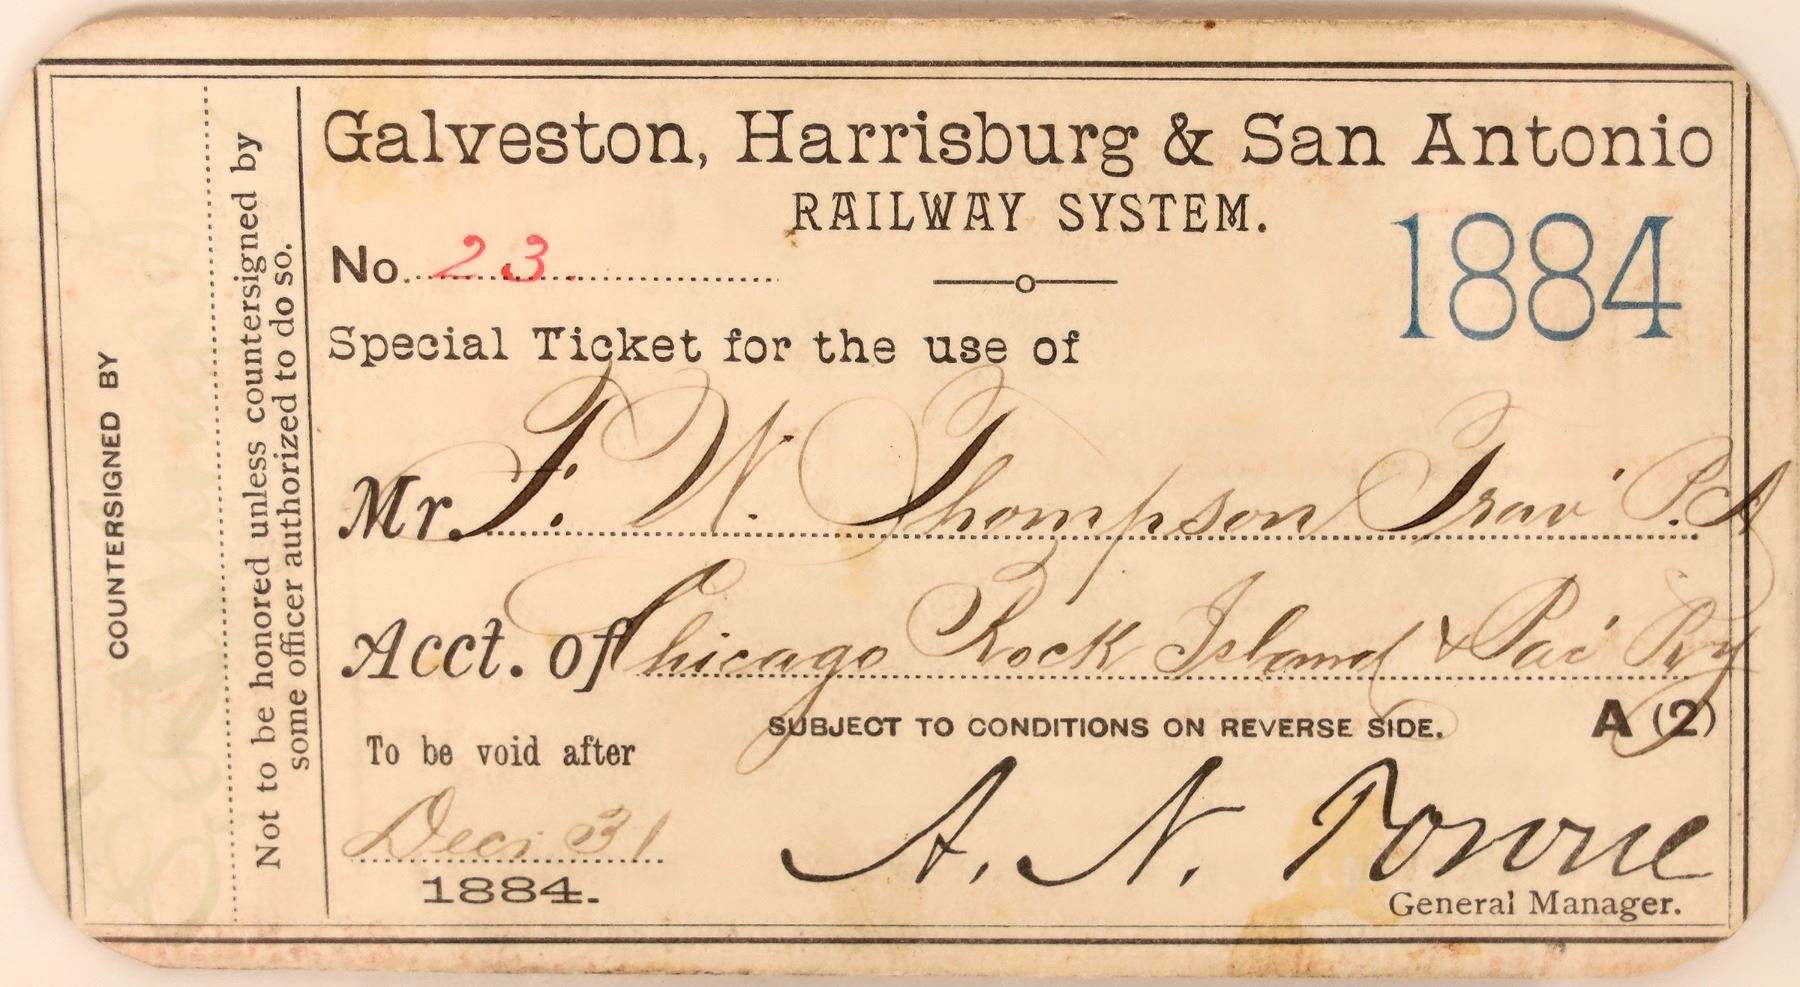 Galveston, Harrisburg & San Antonio
RAILWAY SYSTEM.
1884
No. 23.
Special Ticket for the use of
Mr. F. W. Thompson Trav' P. A
Acct. of Chicago Rock Island & Pac' Ry
SUBJECT TO CONDITIONS ON REVERSE SIDE.
A (2)
To be void after
Dec. 31
1884.
A. N. Towne
General Manager.
COUNTERSIGNED BY
Not to be honored unless countersigned by
some officer authorized to do so.